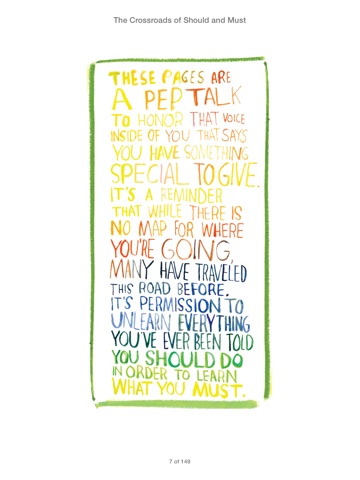 The Crossroads of Should and Must
THESE PAGES ARE
A PEP TALK
TO HONOR THAT VOICE
INSIDE OF YOU THAT SAYS
YOU HAVE SOMETHING
SPECIAL TO GIVE.
IT'S A REMINDER
THAT WHILE THERE IS
NO MAP FOR WHERE
YOU'RE GOING,
MANY HAVE TRAVELED
THIS ROAD BEFORE.
IT'S PERMISSION TO
UNLEARN EVERYTHING
YOU'VE EVER BEEN TOLD
YOU SHOULD DO
IN ORDER TO LEARN
WHAT YOU MUST.
7 of 149